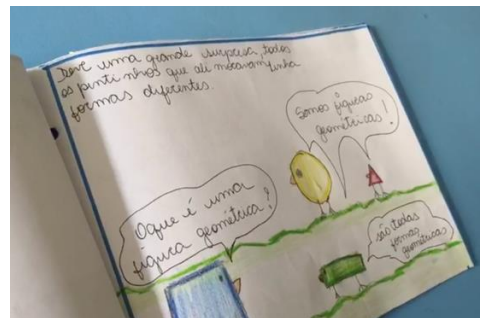 Teve uma grande surpresa, todos
os pintinhos que ali moravam tinha
formas diferentes.
Somos figuras
geométricas!
O que é uma
figura geométrica?
são todas
formas
geométricas